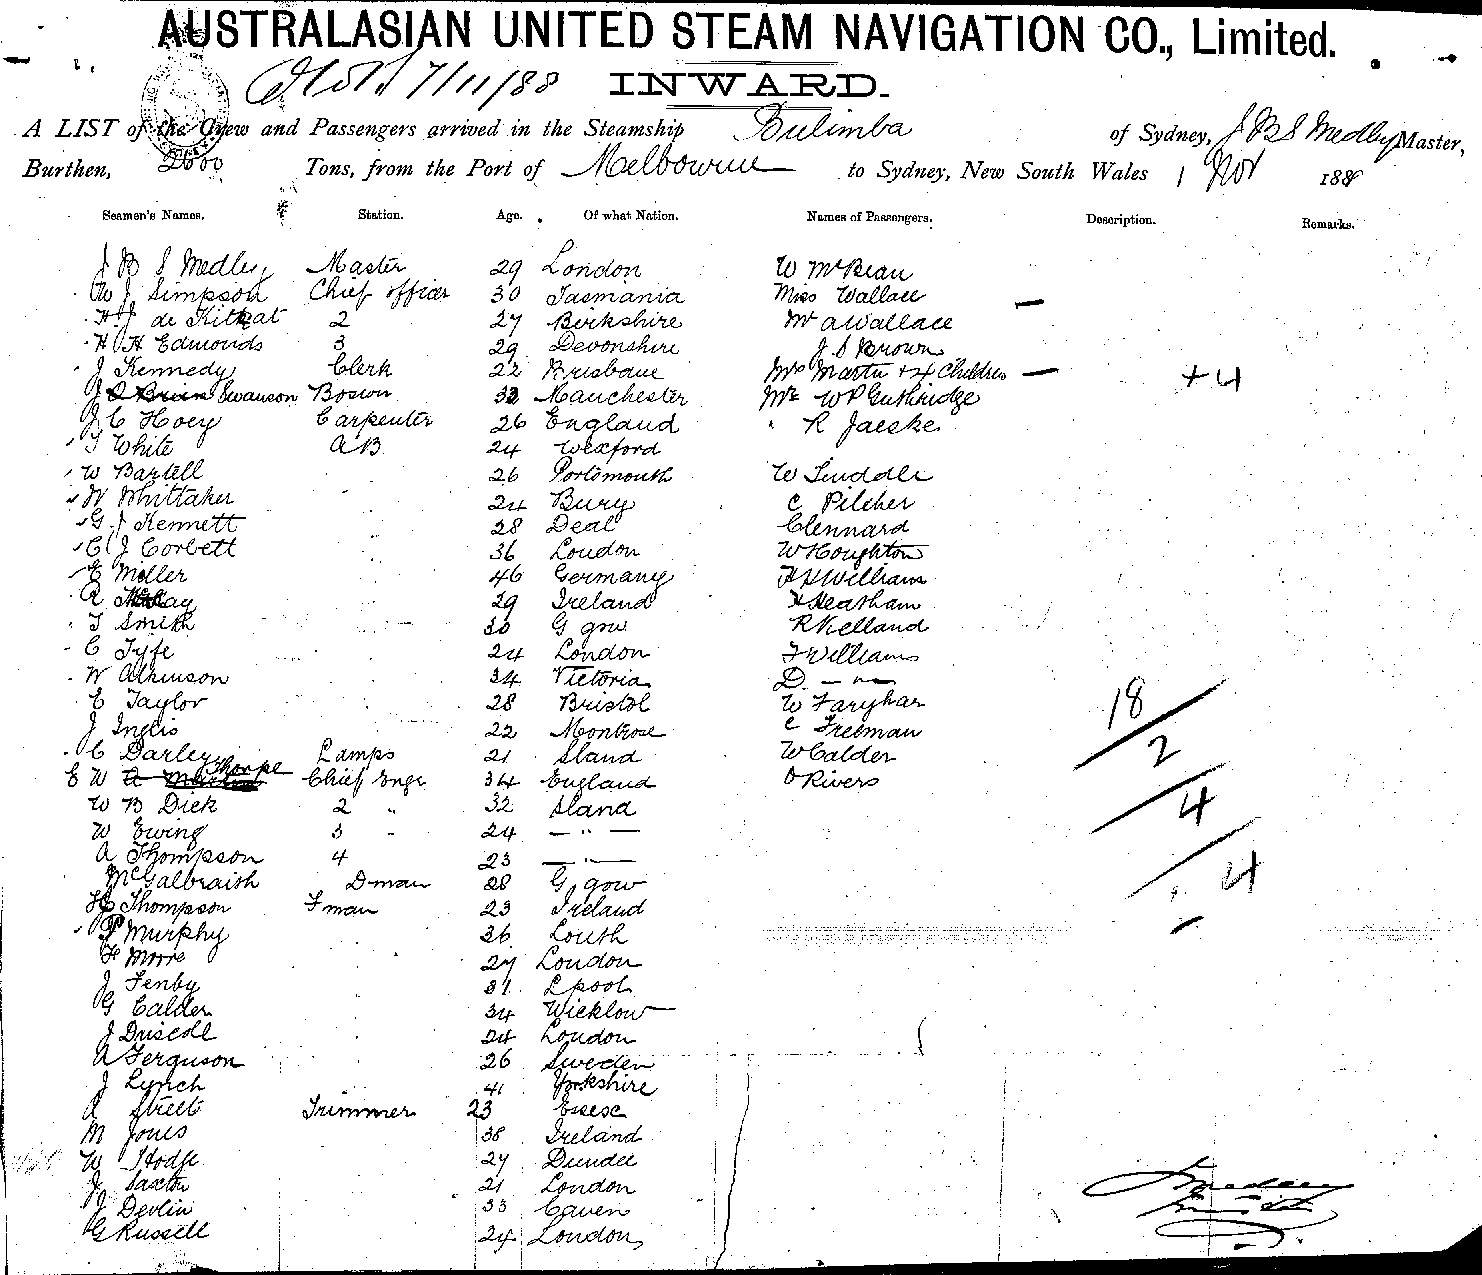 AUSTRALASIAN UNITED STEAM NAVIGATION CO., Limited.
7/11/88 INWARD.
A LIST of the Crew and Passengers arrived in the Steamship Bulimba of Sydney, J B S Medley Master,
Burthen, 2000 Tons, from the Port of Melbourne to Sydney, New South Wales 1 Nov 1888
Seamen's Names. Station. Age. Of what Nation. Names of Passengers. Description. Remarks.
J B S Medley Master 29 London W McBean
W J Simpson Chief officer 30 Tasmania Miss Wallace —
H J de Kitkat 2 27 Birkshire Mr A Wallace
H H Edmonds 3 29 Devonshire J S Brown
J Kennedy Clerk 22 Brisbane Mrs Martin + 4 Children — + 4
J O Brien Swanson Bosun 32 Manchester Mr W P Guthridge
J C Hoey Carpenter 26 England R Jaeske
T White AB 24 Wexford
W Bartell 26 Portsmouth W Liddle
W Whittaker 24 Bury C Pilcher
G J Kennett 28 Deal Clennard
C J Corbett 36 London W Houghton
E Miller 46 Germany H H Williams
R 29 Ireland H Heatham
T Smith 30 G gow R Kelland
C Fyfe 24 London F Williams
W Atkinson 34 Victoria D — " —
E Taylor 28 Bristol W Farquhar
J Inglis 22 Montrose C Freeman
C Darley Lamps 21 Sland W Calder
E W Thorpe Chief Engr 34 England O Rivers
W B Dick 2 " 32 Sland
W Ewing 3 " 24 — " —
A Thompson 4 23 — " —
McGalbraith D man 28 G gow
H C Thompson F man 23 Ireland
P Murphy 36 Louth
H Moore 27 London
J Fenby 31 L pool
G Calder 34 Wicklow
J Driscoll 24 London
A Ferguson 26 Sweden
J Lynch 41 Yorkshire
R Street Trimmer 23 Essex
M Jones 38 Ireland
W Hodge 27 Dundee
J Saxton 21 London
J Devlin 33 Caven
G Russell 24 London
18
/ 2
/ 4
/ 4
Medley